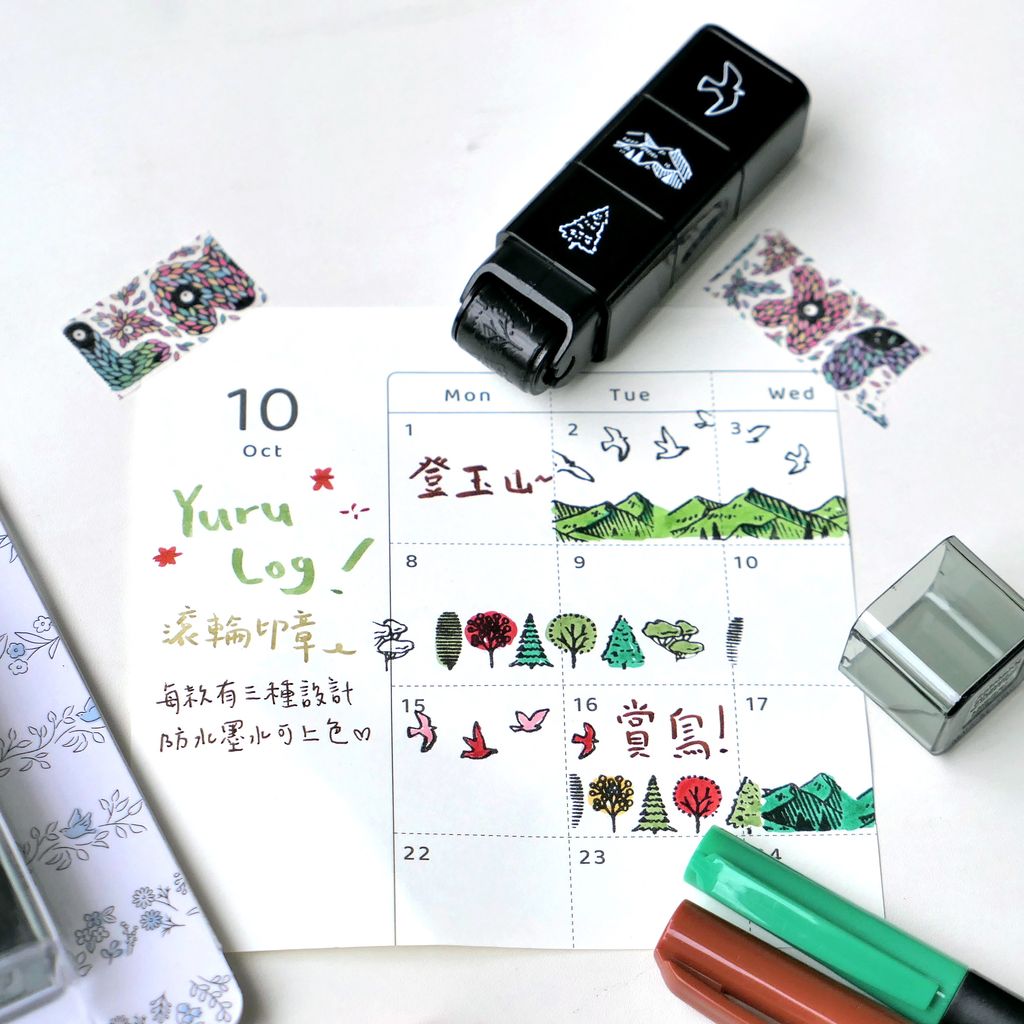 10
Oct
Yuru
Log!
滾輪印章
每款有三種設計
防水墨水可上色♡
Mon Tue Wed
1 2 3
登玉山~
8 9 10
15 16 17
賞鳥!
22 23 24